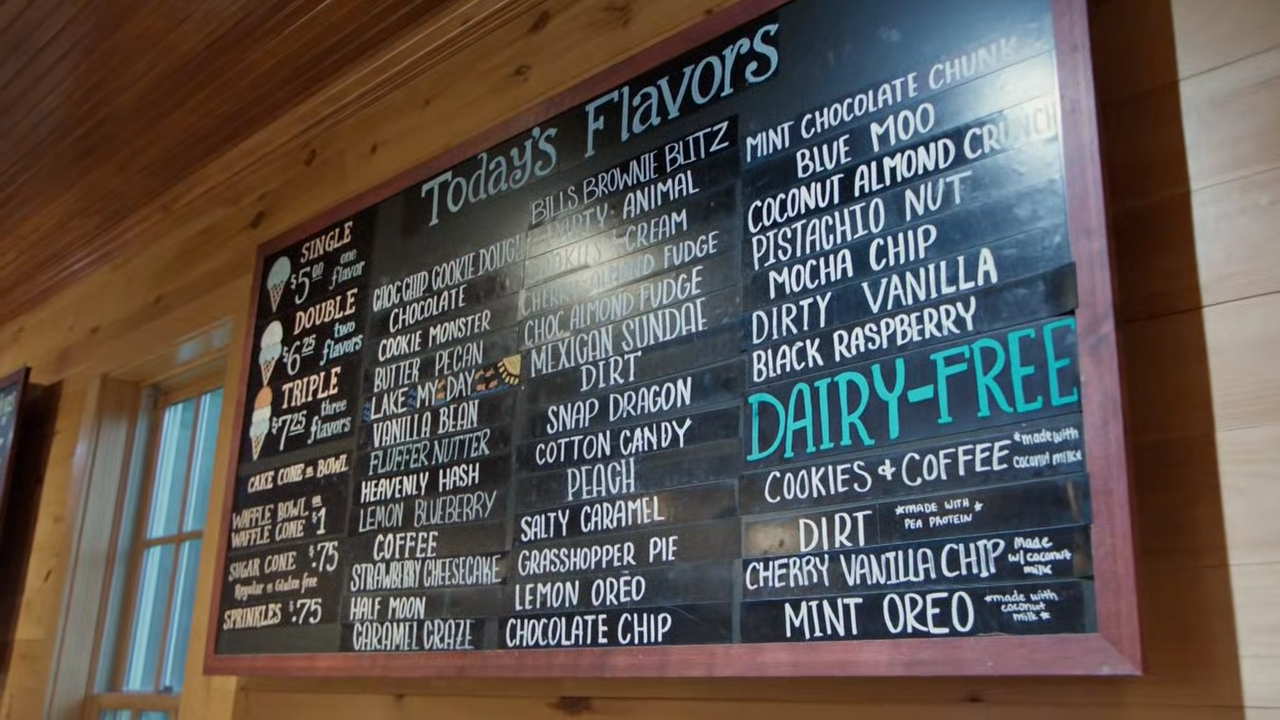 Today's Flavors
SINGLE
$5.00 one flavor
DOUBLE
$6.25 two flavors
TRIPLE
$7.25 three flavors
CAKE CONE or BOWL
WAFFLE BOWL or
WAFFLE CONE $1
SUGAR CONE $.75
Regular or Gluten free
SPRINKLES $.75
CHOC CHIP COOKIE DOUGH
CHOCOLATE
COOKIE MONSTER
BUTTER PECAN
LAKE MY DAY
VANILLA BEAN
FLUFFER NUTTER
HEAVENLY HASH
LEMON BLUEBERRY
COFFEE
STRAWBERRY CHEESECAKE
HALF MOON
CARAMEL CRAZE
BILLS BROWNIE BLITZ
PARTY ANIMAL
COOKIES + CREAM
CHERRY ALMOND FUDGE
CHOC ALMOND FUDGE
MEXICAN SUNDAE
DIRT
SNAP DRAGON
COTTON CANDY
PEACH
SALTY CARAMEL
GRASSHOPPER PIE
LEMON OREO
CHOCOLATE CHIP
MINT CHOCOLATE CHUNK
BLUE MOO
COCONUT ALMOND CRUNCH
PISTACHIO NUT
MOCHA CHIP
DIRTY VANILLA
BLACK RASPBERRY
DAIRY-FREE
COOKIES & COFFEE *made with coconut milk*
DIRT *MADE WITH PEA PROTEIN*
CHERRY VANILLA CHIP made w/ coconut milk
MINT OREO *made with coconut milk*